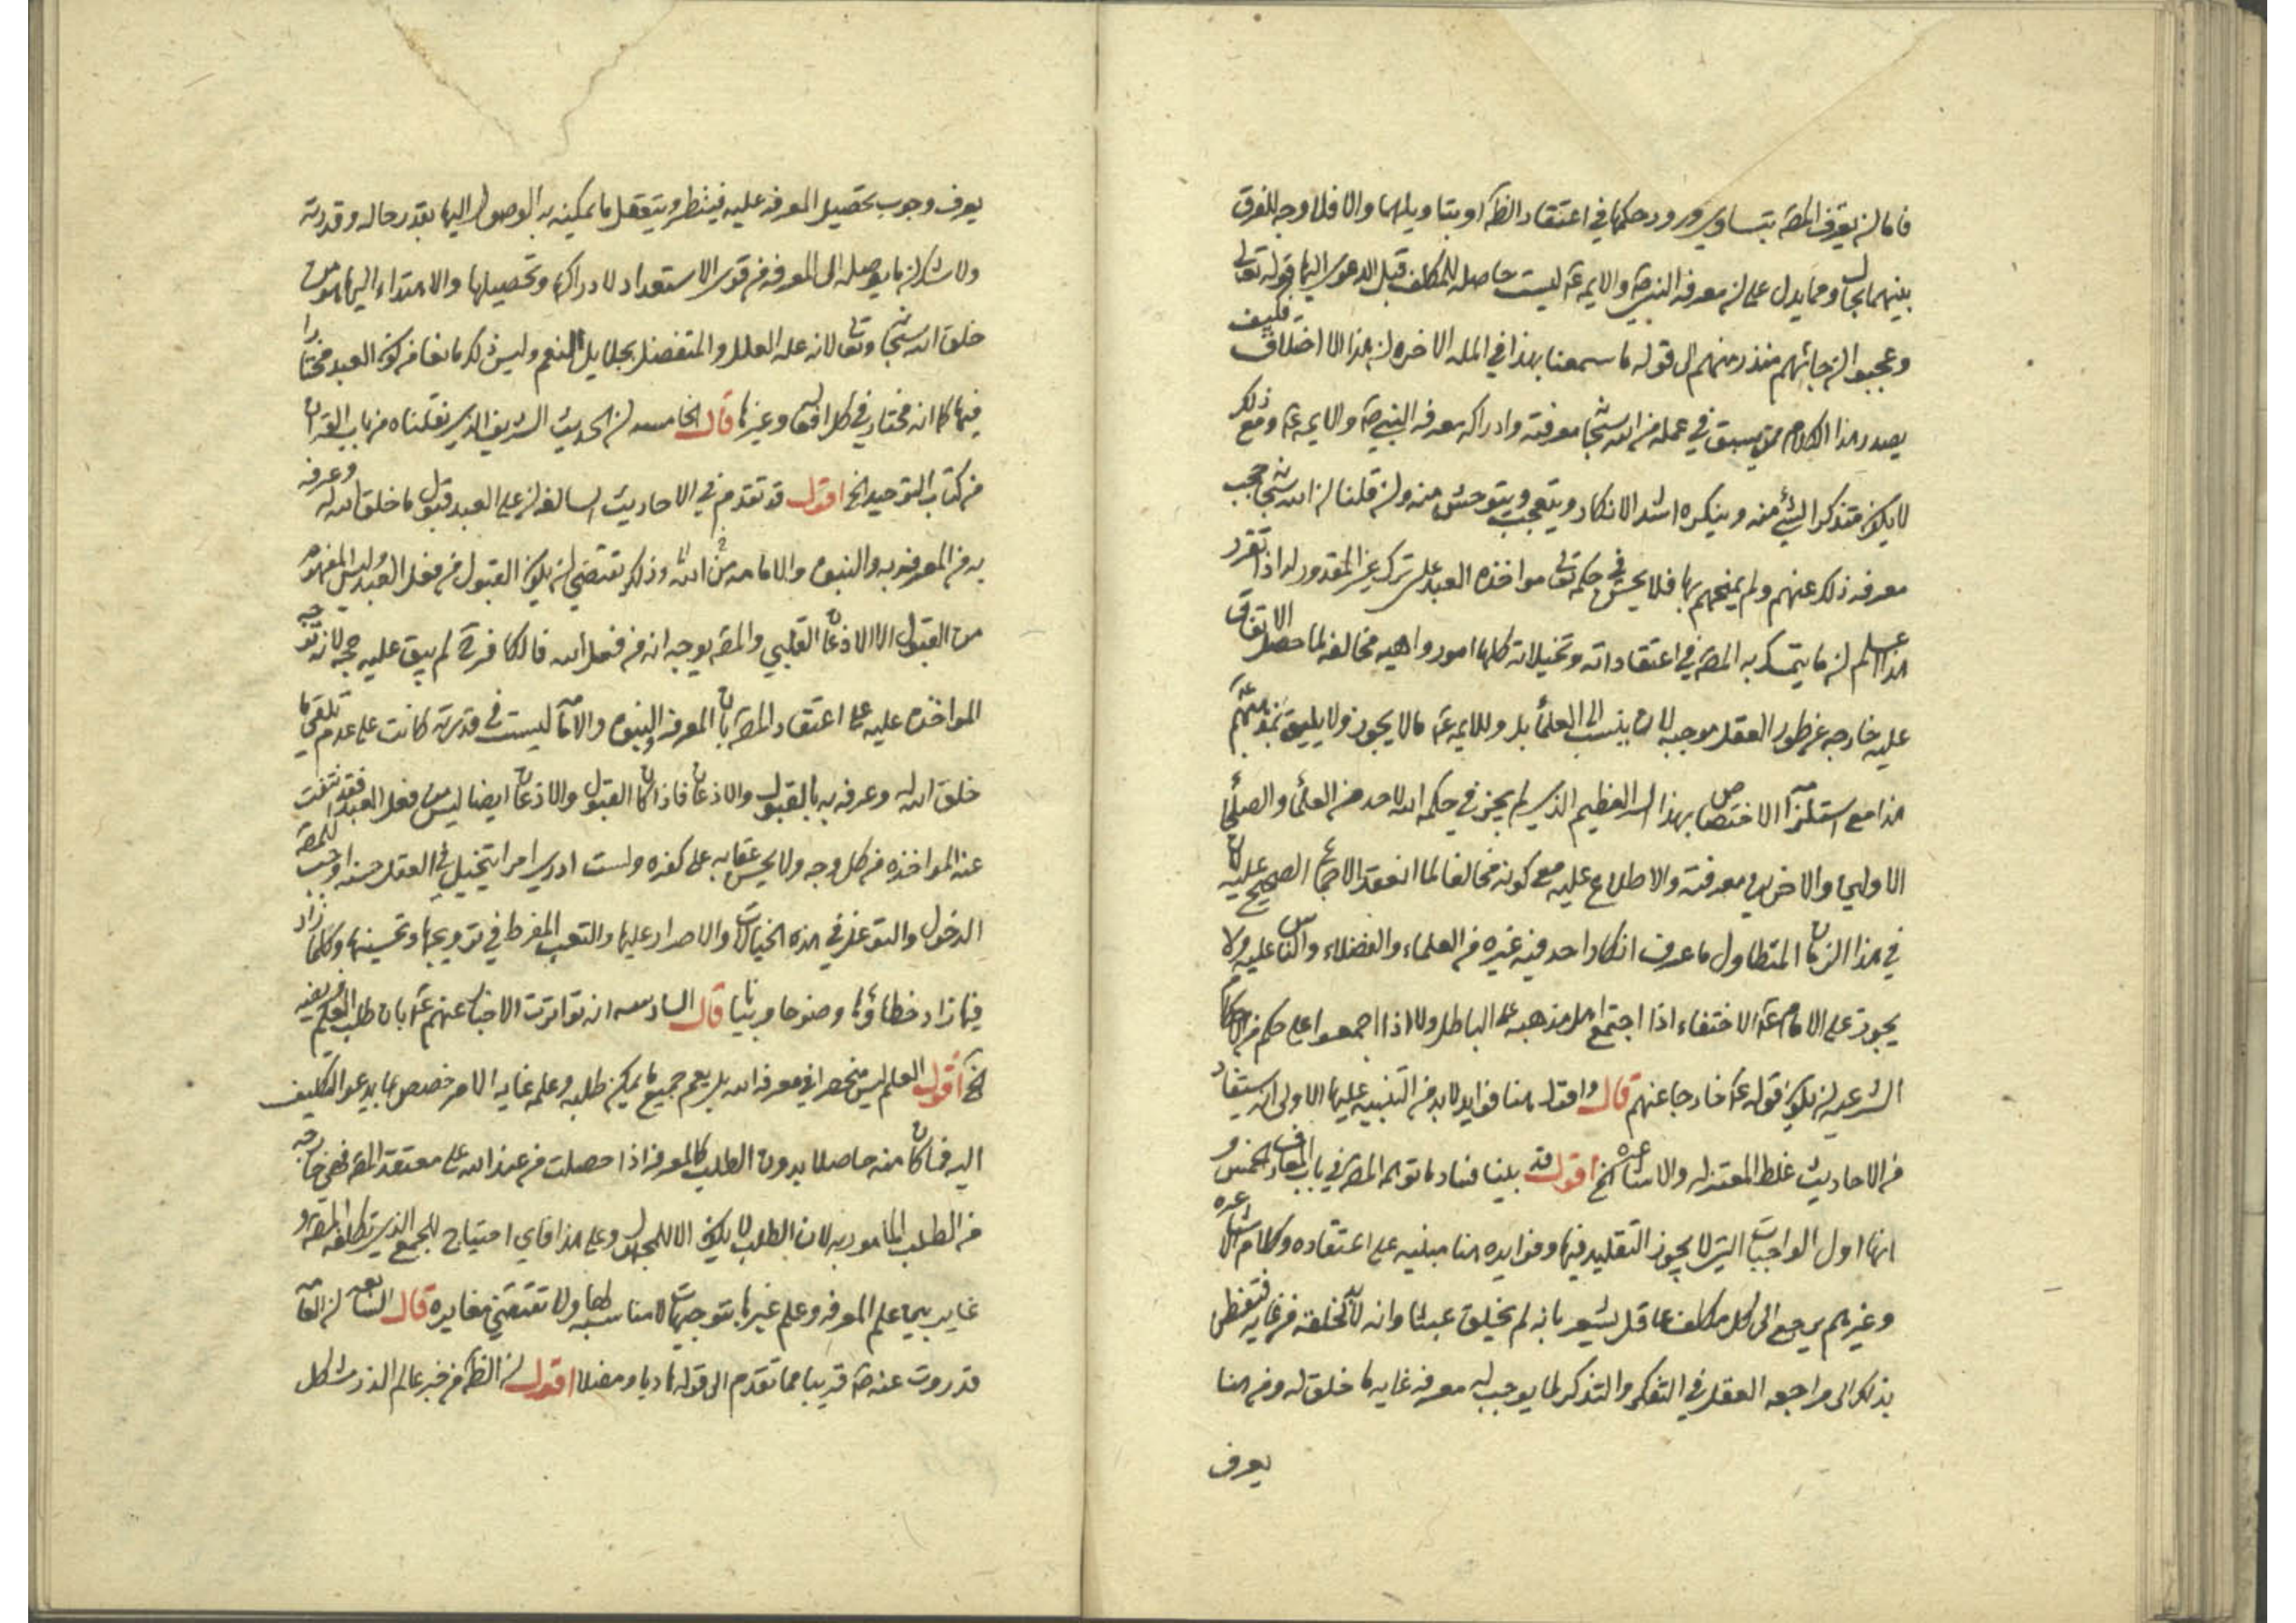 فاما ان يعترف المصه بتساوي ورود حكمها في اعتقاد الظاهر او بتاويلهما والا فلا وجه للفرق
بينهما بحال ومما يدل على ان معرفه النبي ص والايمه ع ليست حاصله للمكلف قبل الدعوى اليها قوله تعالى
وعجبوا ان جائهم منذر منهم الى قوله ما سمعنا بهذا في المله الاخره ان هذا الا اختلاق فكيف
يصدر هذا الكلام ممن يسبق في عمله من الله سبحانه معرفته وادراكه معرفه النبي ص والايمه ع ومع ذلك
لا يكون متذكرا لشيء منه وينكره اشد الانكار ويتعجب ويتوحش منه وان قلنا ان الله سبحانه حجب
معرفه ذلك عنهم ولم يمنحهم بها فلا يحسن في حكمه تعالى مواخذه العبد على ترك غير المقدور له اذا تقرر
هذا علم ان ما يتمسك به المصه في اعتقاداته وتخيلاته كلها امور واهيه مخالفه لما حصل الاتفاق
عليه خارجه عن طور العقل موجبه لان ينسب الى العلماء بل وللايمه ع ما لا يجوز ولا يليق بمذهبهم
هذا مع استلزامه الاختصاص بهذا السر العظيم الذي لم يجز في حكمه الله لاحد من العلماء والصلحاء
الاولين والاخرين معرفته والاطلاع عليه مع كونه مخالفا لما انعقد الاجماع الصحيح عليه لان
في هذا الزمان المتطاول ما عرف انكار احد فيه غيره من العلماء والفضلاء والناس عليه ولا
يجوز على الامام ع الاختفاء اذا اجتمع اهل مذهبه على الباطل ولا اذا اجمعوا على حكم من الاحكام
الشرعيه ان يكون قوله ع خارجا عنهم قال واقول هنا فوايد لابد من التنبيه عليها الاولى انه يستفاد
من الاحاديث غلط المعتزله والاشاعره الخ اقول قد بينا فساد ما توهمه المصه في باب المعارف الخمس و
انها اول الواجبات التي لا يجوز التقليد فيها وفوايده هنا مبنيه على اعتقاده وكلام الاشاعره
وغيرهم يرجع الى ان كل مكلف عاقل يشعر بانه لم يخلق عبثا وانه لابد لخلقه من غايه فتفطن
بذلك الى مراجعه العقل في التفكر والتذكر لما يوجب له معرفه غايه ما خلق له ومن هنا
يعرف
يعرف وجوب تحصيل المعرفه عليه فينظر ويتعقل ما يمكنه به الوصول اليها بقدر حاله وقدرته
ولا شك ان ما يوصله الى المعرفه من قوى الاستعداد لادراكها وتحصيلها والاهتداء اليها هو من
خلق الله سبحانه وتعالى لانه عله العلل والمتفضل بجلايل النعم وليس ذلك مانعا من كون العبد مختارا
فيها كما انه مختار في كل افعاله وغيرها قال الخامسه ان الحديث الشريف الذي نقلناه من باب القران
من كتاب التوحيد الخ اقول قد تقدم في الاحاديث السالفه ان على العبد قبول ما خلق الله له وعرفه
به من المعرفه به والنبوه والامامه من الله وذلك يقتضي ان يكون القبول من فعل العبد وليس المفهوم
من القبول الا الاذعان القلبي والمصه يوجب انه من فعل الله فالكافر ح لم يبق عليه حجه لانه توجه
المواخذه عليه على اعتقاد المصه بان المعرفه والنبوه والامامه ليست في قدرته كانت على عدم تلقي ما
خلق الله له وعرفه به بالقبول والاذعان فاذا كان القبول والاذعان ايضا ليس من فعل العبد فقد انتفت
عنه المواخذه من كل وجه ولا يحسن عقابه على كفره ولست ادري امرا يتخيل في العقل حسنه اوجب للمصه
الدخول والتوغل في هذه الخيالات والاصرار عليها والتعب المفرط في ترويجها وتحسينها وكلما زاد
فيها زاد خطاؤها وضوحا وبيانا قال السادسه انه تواترت الاخبار عنهم ع بان طلب العلم فريضه
الخ اقول العلم ليس منحصرا في معرفه الله بل يعم جميع ما يمكن طلبه وعلمه غايه الامر خصص بما يدعو التكليف
اليه فما كان منه حاصلا بدون الطلب كالمعرفه اذا حصلت من عند الله على معتقد المصه فهي خارجه
من الطلب المامور به لان الطلب لا يكون الا للمجهول وعلى هذا فاي احتياج للجمع الذي تكلفه المصه و
غاير بين علم المعرفه وعلم غيرها بتوجيهات لا مناسبه لها ولا تقتضي مغايره قال السابعه ان العامه
قد روت عنه ص قريبا مما تقدم الى قوله هاديا ومضلا اقول ان الظاهر من خبر عالم الذر مشاكل